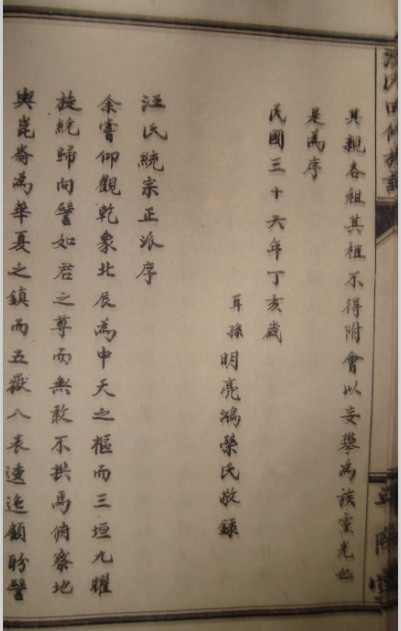 其親各祖其祖不得附會以妄攀為該靈光也
是為序
民國三十六年丁亥歲
耳孫明亮鴻榮氏敬錄
汪氏統宗正派序
余嘗仰觀乾象北辰為中天之樞而三垣九耀
旋繞歸向譬如君之尊而無敢不拱焉俯察地
輿崑崙為華夏之鎮而五嶽八表透迤顧盼譬